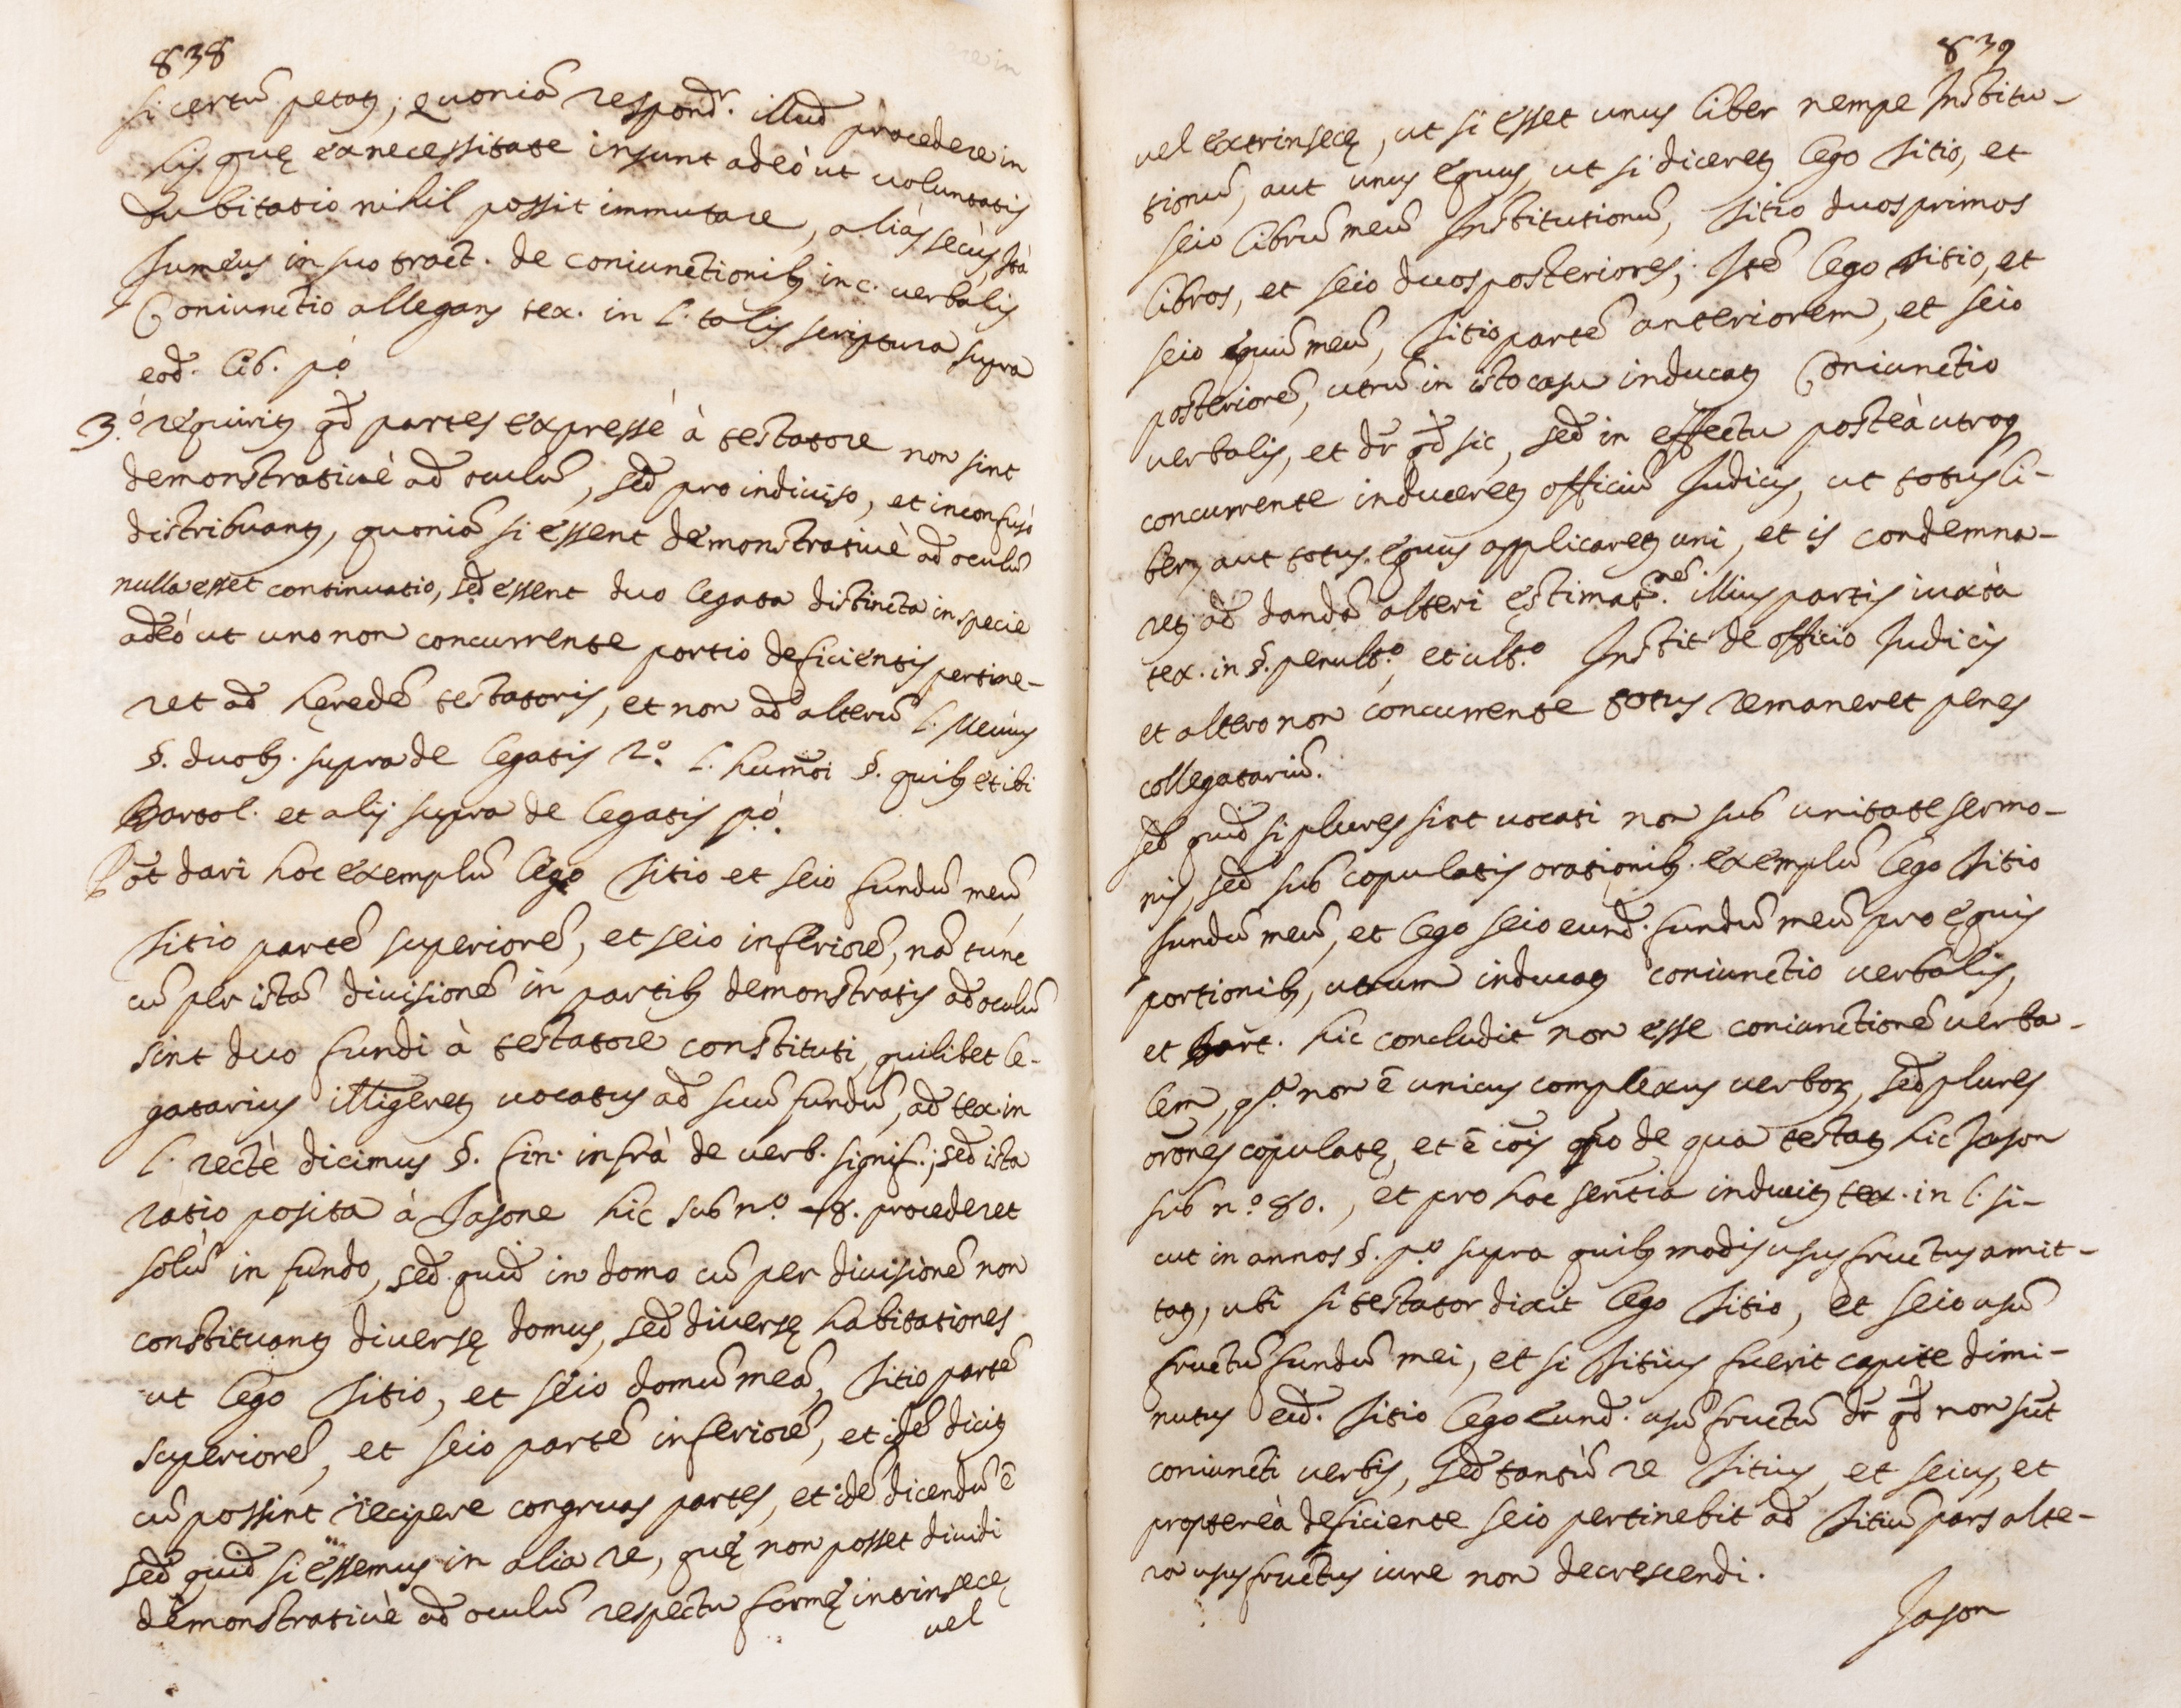 838
si certū petatꝫ; Quoniā respondr. illud̄ procedere in
his quę ex necessitate insunt adeò ut voluntatis
dubitatio nihil possit immutare, aliàs secùs, Ità
in suo tract. de coniunctionibꝫ in c. verbalis
Coniunctio allegans tex. in l. talis scriptura supra
eod̄. lib. pº
3.º requiritꝫ qd̄ partes expressè à testatore non sint
demonstrativè ad̄ oculū, sed̄ pro indiviso, et inconfusò
distribuantꝫ, quoniā si essent demonstrativè ad̄ oculū
nulla esset continuatio, sed̄ essent duo legata distincta in specie
adeò ut uno non concurrente portio deficientis pertine-
ret ad̄ hęredē testatoris, et non ad̄ alterū l. Mevius
§. duobꝫ. supra de legatis 2.º l. huiusmōi §. quibꝫ et ibi
Bartol. et alij supra de legatis pº.
Pōt dari hoc exemplū lego Titio et Seio fundū meū
Titio partē superiorē, et Seio inferiorē, nā tunc
cū per istā divisionē in partibꝫ demonstratis ad̄ oculū
sint duo fundi à testatore constituti, quilibet le-
gatarius intelligeretꝫ vocatus ad̄ suū fundū, ad̄ tex. in
l. rectè dicimus §. fin. infrà de verb. signif.; sed̄ ista
ratio posita à Jasone hic sub n.º 78. procederet
solū in fundo, sed̄ quid̄ in domo cū per divisionē non
constituantꝫ diversę domus, sed̄ diversę habitationes
ut lego Titio, et Seio domū meā, Titio partē
superiorē, et Seio partē inferiorē, et idē dicitꝫ
cū possint recipere congruas partes, et idē dicendū ē
sed̄ quid̄ si essemus in alia re, quę non posset dividi
demonstrativè ad̄ oculū respectu formę intrinsecę
vel
839
vel extrinsecę, ut si esset unus liber nempe Institu-
tionū, aut unus equus, ut si diceretꝫ lego Titio, et
Seio librū meū Institutionū, Titio duos primos
libros, et Seio duos posteriores; Itē lego Titio, et
Seio equū meū, Titio partē anteriorem, et Seio
posteriorē, utrū in isto casu inducatꝫ Coniunctio
verbalis, et dr̄ qd̄ sic, sed̄ in effectu posteà utroqꝫ
concurrente induceretꝫ officiū Judicis, ut totus li-
ber, aut totus equus applicaretꝫ uni, et is condemna-
retꝫ ad̄ dandā alteri ęstimat.nē illius partis iuxtà
tex. in §. penult.º, et ult.º Instit. de officio Judicis
et altero non concurrente totus remaneret penes
collegatariū.
Sed̄ quid̄ si plures sint vocati non sub unitate sermo-
nis, sed̄ sub copulatis orationibꝫ. exemplū lego Titio
fundū meū, et lego Seio eund̄. fundū meū pro ęquis
portionibꝫ, utrum inducatꝫ coniunctio verbalis,
et Bart. hic concludit non esse coniunctionē verba-
lem, qa non ē unicus complexus verborꝫ, sed̄ plures
orōnes copulatę, et ē cōis opīo de qua testatꝫ hic Jason
sub n.º 80., et pro hac sentia inducitꝫ tex. in l. si-
cut in annos §. pº supra quibꝫ modis usus fructus amit-
tatꝫ, ubi si testator dixit lego Titio, et Seio usū
fructū fundū mei, et si Titius fuerit capite dimi-
nutus eid̄. Titio lego eund̄. usū fructū dr̄ qd̄ non sūt
coniuncti verbis, sed̄ tantū re Titius, et Seius, et
proptereà deficiente Seio pertinebit ad̄ Titiū pars alte-
ra usus fructus iure non decrescendi.
Jason